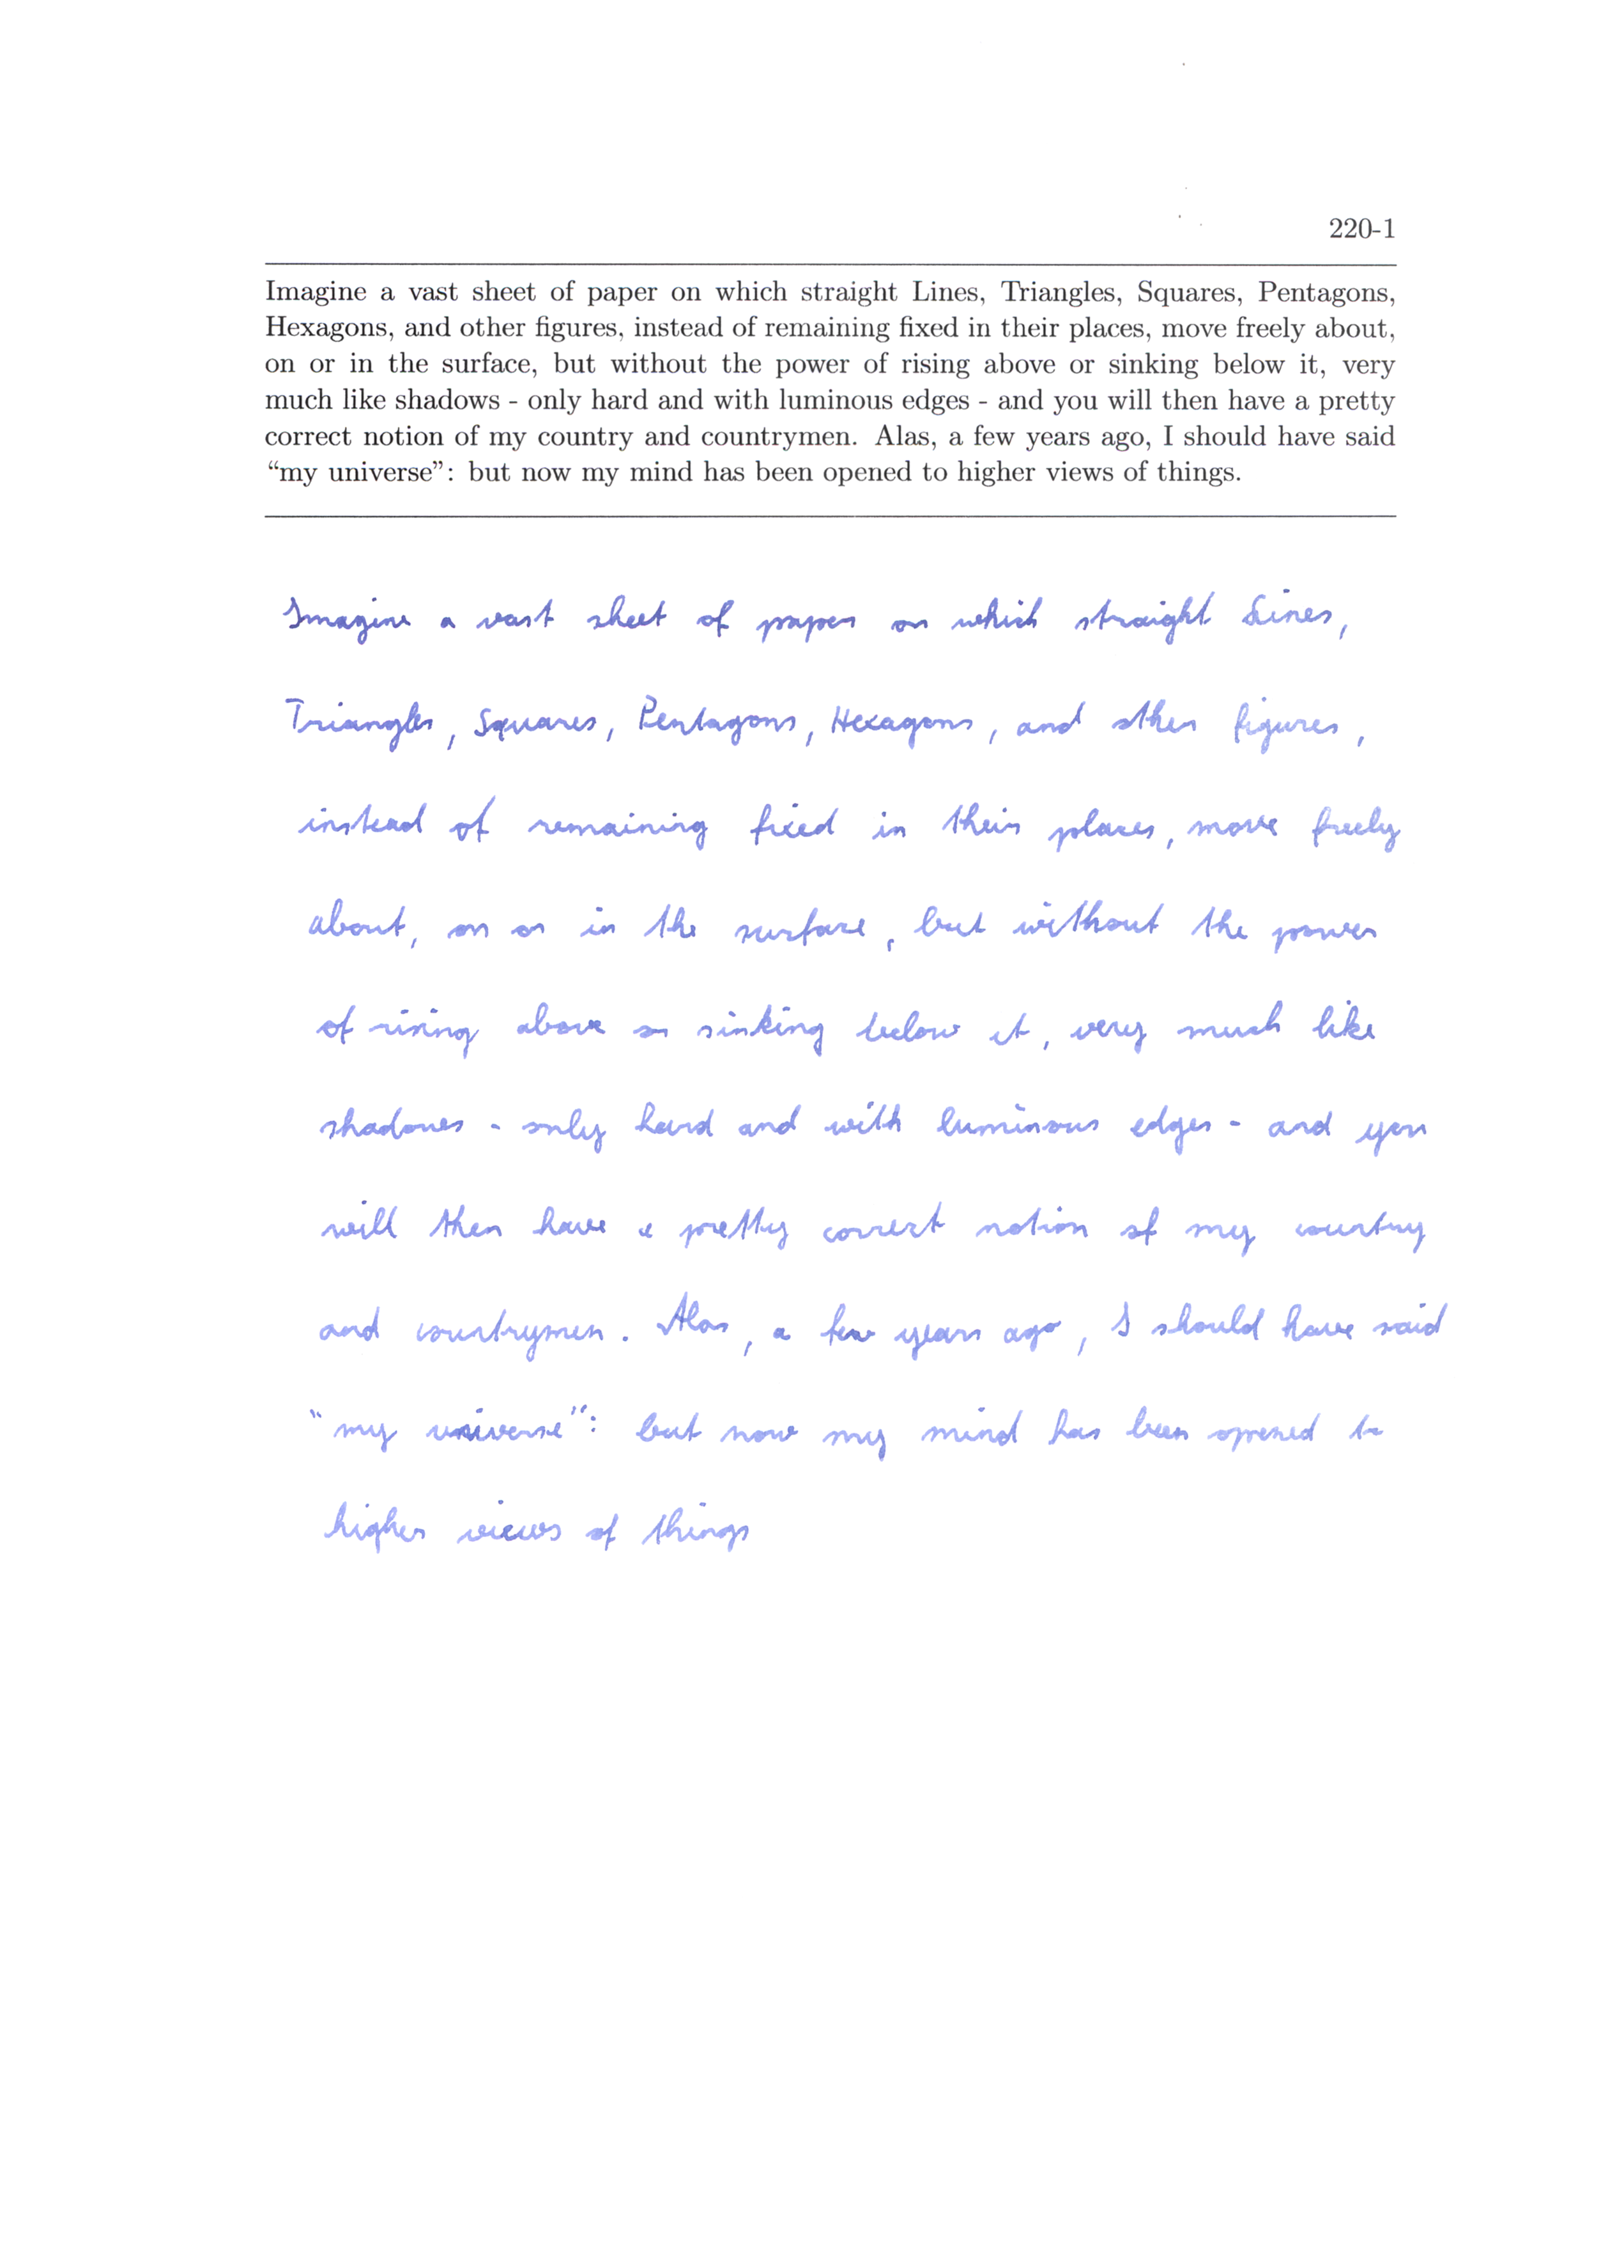 220-1
Imagine a vast sheet of paper on which straight Lines, Triangles, Squares, Pentagons,
Hexagons, and other figures, instead of remaining fixed in their places, move freely about,
on or in the surface, but without the power of rising above or sinking below it, very
much like shadows - only hard and with luminous edges - and you will then have a pretty
correct notion of my country and countrymen. Alas, a few years ago, I should have said
“my universe”: but now my mind has been opened to higher views of things.
Imagine a vast sheet of paper on which straight Lines,
Triangles, Squares, Pentagons, Hexagons, and other figures,
instead of remaining fixed in their places, move freely
about, on or in the surface, but without the power
of rising above or sinking below it, very much like
shadows - only hard and with luminous edges - and you
will then have a pretty correct notion of my country
and countrymen. Alas, a few years ago, I should have said
“my universe”: but now my mind has been opened to
higher views of things